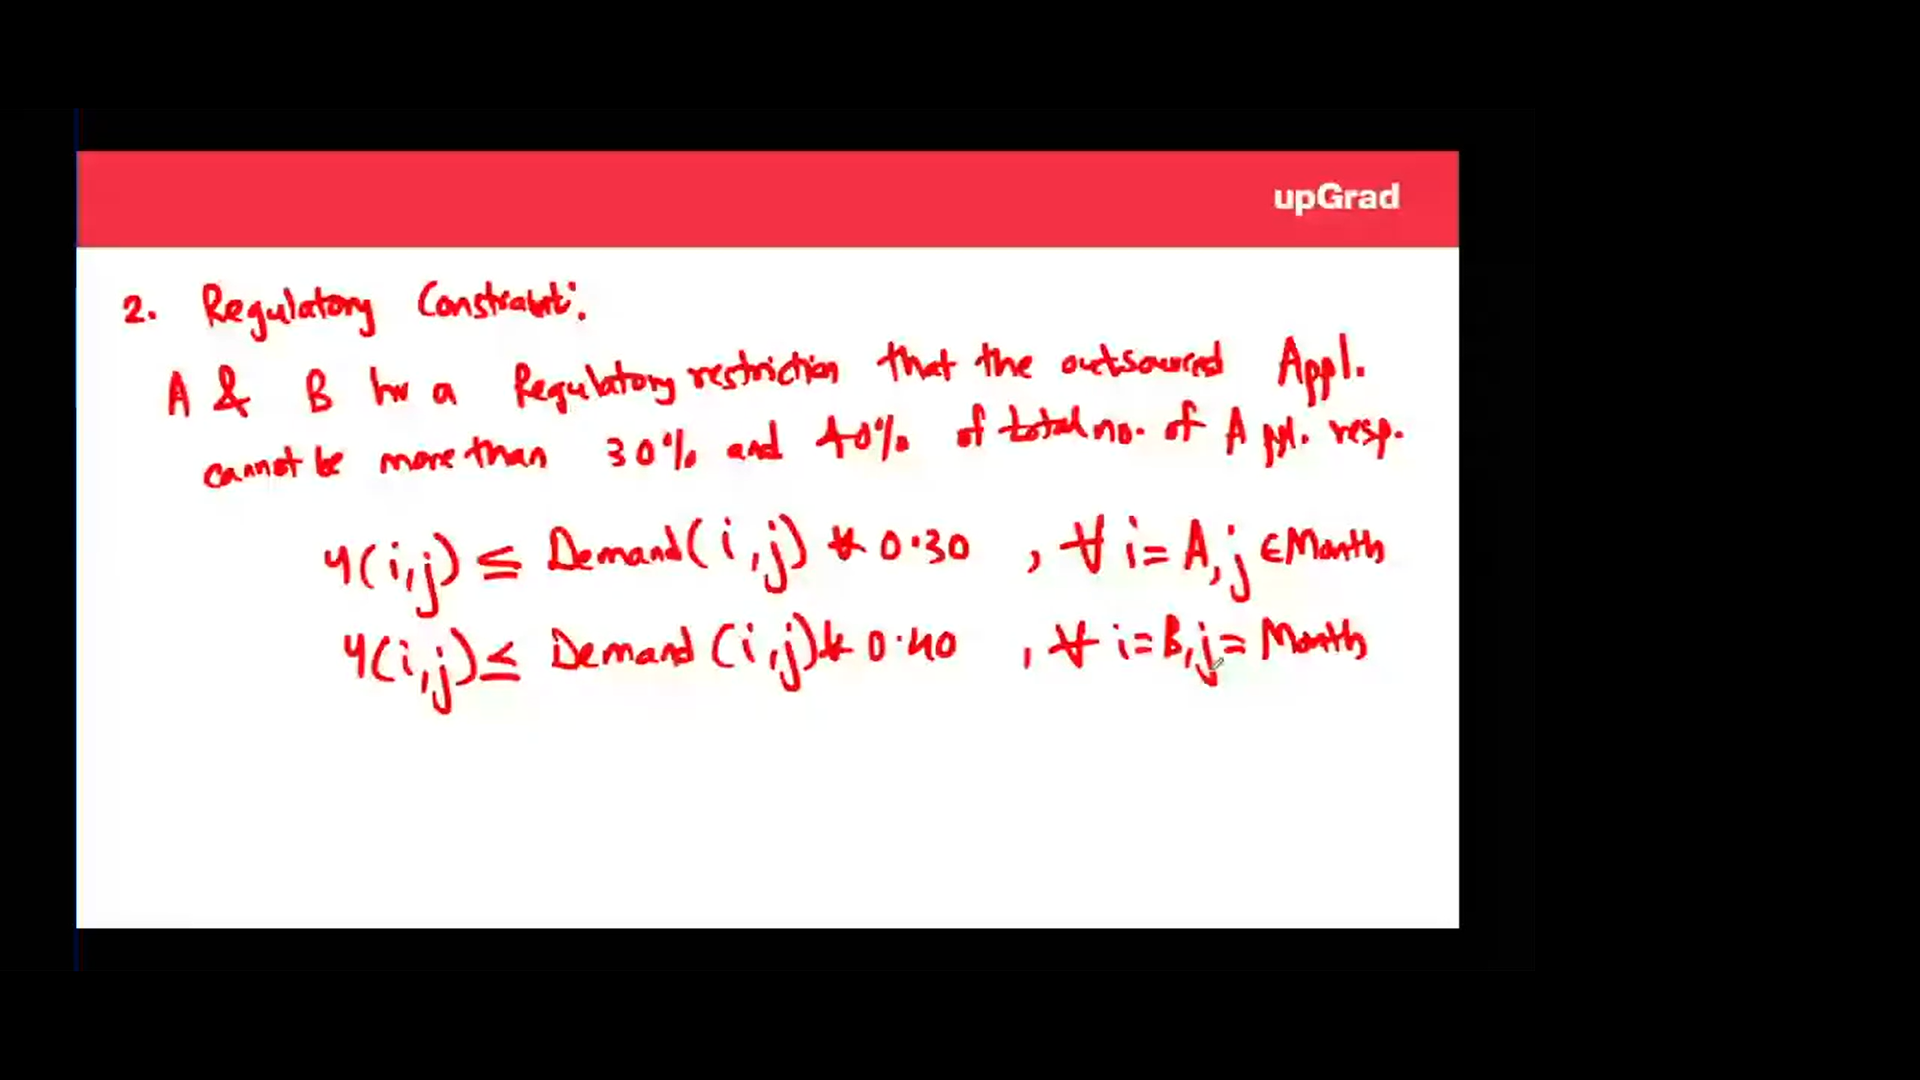 upGrad
2. Regulatory Constraint:
A & B hv a Regulatory restriction that the outsourced Appl.
cannot be more than 30% and 40% of total no. of Appl. resp.
Y(i,j) ≤ Demand(i,j) * 0.30 , ∀ i=A, j ∈ Month
Y(i,j) ≤ Demand (i,j) * 0.40 , ∀ i=B, j= Month